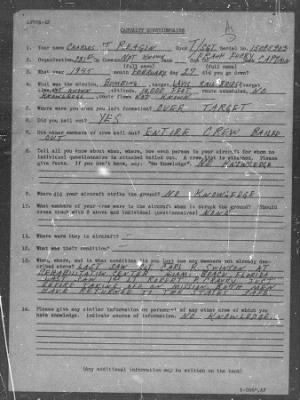 CASUALTY QUESTIONNAIRE
1. Your name CHARLES T REAGIN Rank T/SGT Serial No.
2. Organization NOT KNOWN CAPTAIN
(full name) (full name)
3. What year 1945 month FEBRUARY day did you go down?
4. What was the mission, BOMBING, target,
target time, altitude, route
NO KNOWLEDGE NOT KNOWN
5. Where were you when you left formation? OVER TARGET
6. Did you bail out? YES
7. Did other members of crew bail out? ENTIRE CREW BAILED
OUT
8. Tell all you know about when, where, how each person in your aircraft for whom no
individual questionnaire is attached bailed out. A crew list is attached. Please
give facts. If you don't know, say: "No Knowledge". NO KNOWLEDGE
9. Where did your aircraft strike the ground? NO KNOWLEDGE
10. What members of your crew were in the aircraft when it struck the ground? (Should
cross check with 8 above and individual questionnaires) NONE
11. Where were they in aircraft? -
12. What was their condition? -
13. When, where, and in what condition did you last see any members not already des-
cribed above? LAST SAW
REHABILITATION CENTER MIAMI BEACH FLORIDA
BEFORE MISSION BOTH MEN
HAVE RETURNED TO THE STATES SAFE.
14. Please give any similar information on personnel of any other crew of which you
have knowledge. Indicate source of information. NO KNOWLEDGE
(Any additional information may be written on the back)